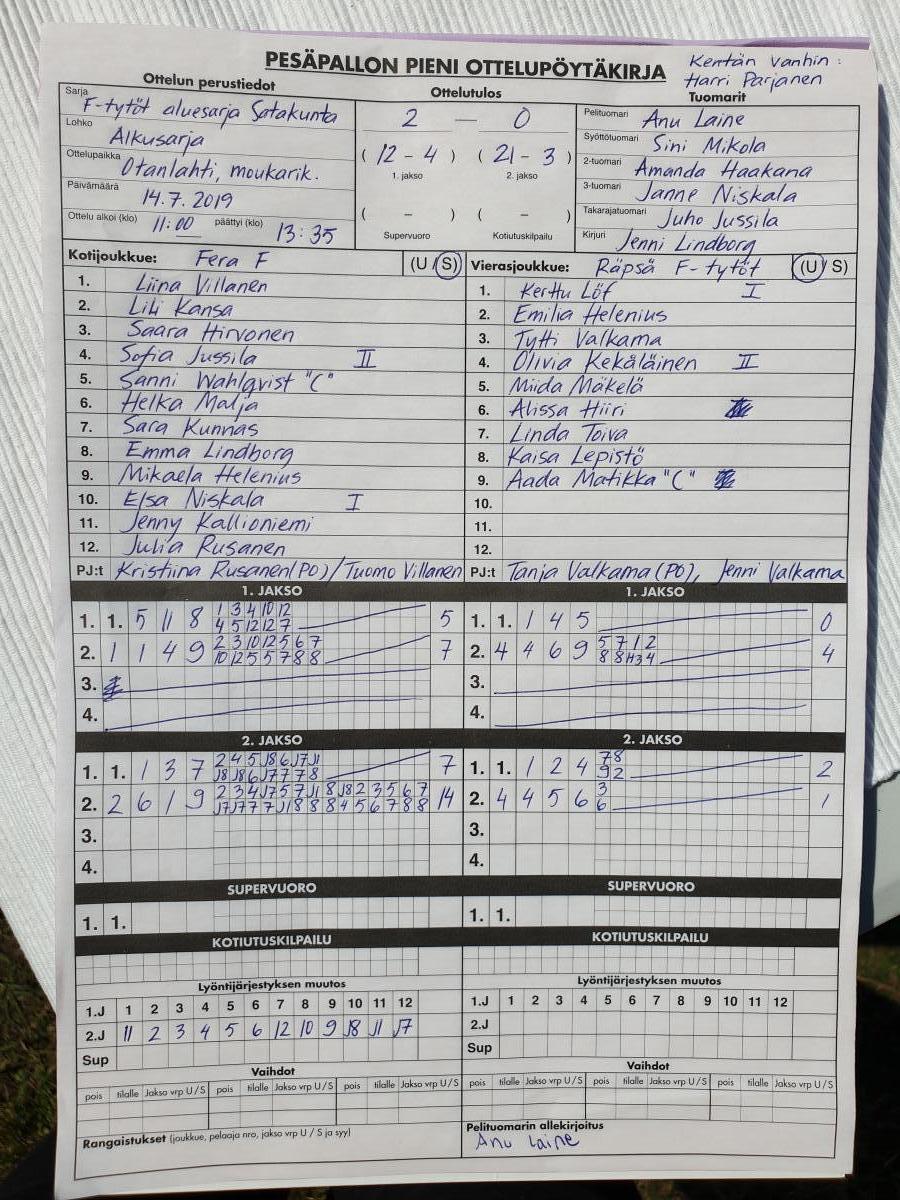 PESÄPALLON PIENI OTTELUPÖYTÄKIRJA
Kentän vanhin :
Harri Parjanen
Ottelun perustiedot
Sarja F-tytöt aluesarja Satakunta
Lohko Alkusarja
Ottelupaikka Otanlahti, moukarik.
Päivämäärä 14.7. 2019
Ottelu alkoi (klo) 11:00 päättyi (klo) 13:35
Ottelutulos
2 — 0
( 12 - 4 ) ( 21 - 3 )
1. jakso 2. jakso
( - ) ( - )
Supervuoro Kotiutuskilpailu
Tuomarit
Pelituomari Anu Laine
Syöttötuomari Sini Mikola
2-tuomari Amanda Haakana
3-tuomari Janne Niskala
Takarajatuomari Juho Jussila
Kirjuri Jenni Lindborg
Kotijoukkue: Fera F (U / S)
1. Liina Villanen
2. Lili Kansa
3. Saara Hirvonen
4. Sofia Jussila II
5. Sanni Wahlqvist "C"
6. Helka Malja
7. Sara Kunnas
8. Emma Lindborg
9. Mikaela Helenius
10. Elsa Niskala I
11. Jenny Kallioniemi
12. Julia Rusanen
PJ:t Kristiina Rusanen(PO)/Tuomo Villanen
Vierasjoukkue: Räpsä F-tytöt (U / S)
1. Kerttu Löf I
2. Emilia Helenius
3. Tytti Valkama
4. Olivia Kekäläinen II
5. Miida Mäkelä
6. Alissa Hiiri
7. Linda Toiva
8. Kaisa Lepistö
9. Aada Matikka "C"
10.
11.
12.
PJ:t Tanja Valkama (PO), Jenni Valkama
1. JAKSO
1. 1. 5 11 8 1 3 4 10 12 5
4 5 12 12 7
2. 1 1 4 9 2 3 10 12 5 6 7 7
10 12 5 5 7 8 8
3.
4.
1. JAKSO
1. 1. 1 4 5 0
2. 4 4 6 9 5 7 1 2 4
8 8 3 4
3.
4.
2. JAKSO
1. 1. 1 3 7 2 4 5 J8 6 J7 J1 7
J8 J8 6 J7 7 7 8
2. 2 6 1 9 2 3 4 J7 5 7 J1 8 J8 2 3 5 6 7 14
J7 J7 7 7 J1 8 8 8 4 5 6 7 8 8
3.
4.
2. JAKSO
1. 1. 1 2 4 7 8 2
9 2
2. 4 4 5 6 3 1
6
3.
4.
SUPERVUORO
1. 1.
SUPERVUORO
1. 1.
KOTIUTUSKILPAILU
KOTIUTUSKILPAILU
Lyöntijärjestyksen muutos
1.J 1 2 3 4 5 6 7 8 9 10 11 12
2.J 11 2 3 4 5 6 12 10 9 J8 J1 J7
Sup
Lyöntijärjestyksen muutos
1.J 1 2 3 4 5 6 7 8 9 10 11 12
2.J
Sup
Vaihdot
pois tilalle Jakso vrp U / S pois tilalle Jakso vrp U / S pois tilalle Jakso vrp U / S
Vaihdot
pois tilalle Jakso vrp U / S pois tilalle Jakso vrp U / S pois tilalle Jakso vrp U / S
Rangaistukset (joukkue, pelaaja nro, jakso vrp U / S ja syy)
Pelituomarin allekirjoitus
Anu Laine